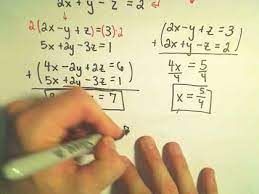 2x + y - z = 2
2(2x - y + z) = (3)·2
5x + 2y - 3z = 1
+ (4x - 2y + 2z = 6
5x + 2y - 3z = 1)
= 7
(2x - y + z = 3)
+ (2x + y - z = 2)
4x = 5
4 4
x = 5/4